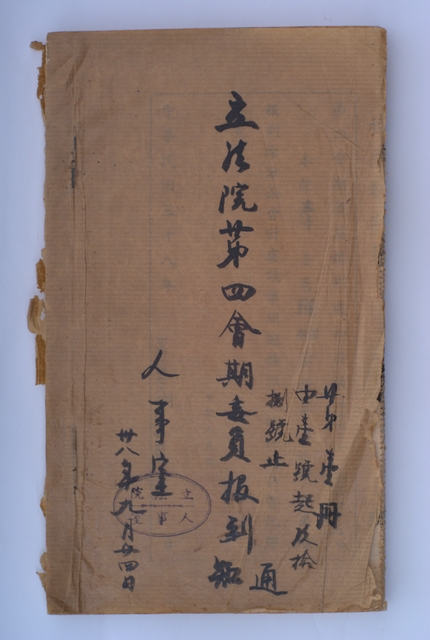 第壹冊
由壹號起及拾
捌號止
立法院第四會期委員報到通知
人事室
立法院
人事室
卅八年九月廿四日